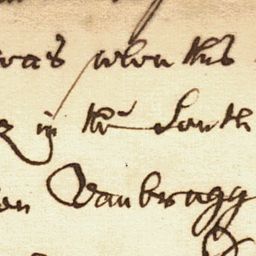 was when this
in the South
on Vanbrugg